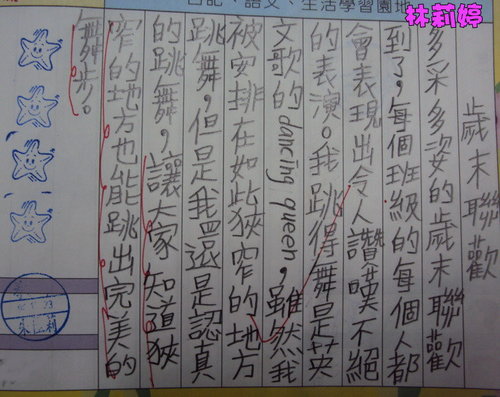 林莉婷
日記、語文、生活學習園地
歲末聯歡
多采多姿的歲末聯歡
到了，每個班級的每個人都
會表現出令人讚嘆不絕
的表演。我跳得舞是英
文歌的dancing queen，雖然我
被安排在如此狹窄的地方
跳舞，但是我還是認真
的跳舞，讓大家知道狹
窄的地方也能跳出完美的
舞步。